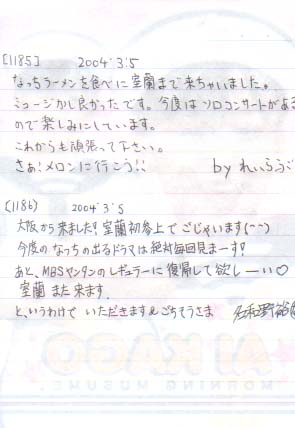 [1185] 2004.3.5
なっちラーメンを食べに室蘭まで来ちゃいました。
ミュージカル良かったです。今度はソロコンサートがある
ので楽しみにしています。
これからも頑張って下さい。
さぁ!メロンに行こう!! by れいらぶ
(1186) 2004.3.5
大阪から来ました!室蘭初参上でござじゃいます(^^)
今度のなっちの出るドラマは絶対毎回見まーす!
あと、MBSヤンタンのレギュラーに復帰して欲しーい♡
室蘭また来ます。
と、いうわけで いただきます&ごちそうさま
AI KAGO
MORNING MUSUME.